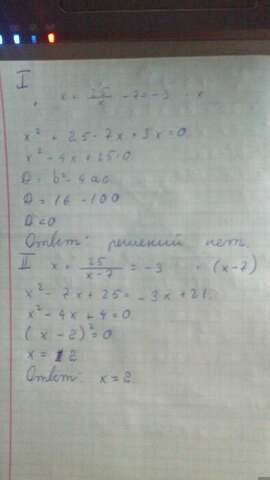 I
x + 25/x - 7 = -3 · x
x² + 25 - 7x + 3x = 0
x² - 4x + 25 = 0
D = b² - 4ac
D = 16 - 100
D < 0
Ответ: решений нет.
II x + 25/(x-7) = -3 · (x-7)
x² - 7x + 25 = -3x + 21
x² - 4x + 4 = 0
(x - 2)² = 0
x = 2
Ответ: x = 2